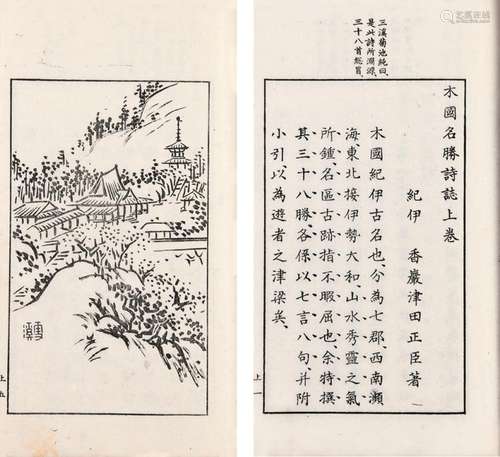 三溪菊池純曰、
是此詩所淵源、
三十八首總冒、
木國名勝詩誌上卷
紀伊 香巖津田正臣著
木國紀伊古名也、分為七郡、西南瀕
海東北接伊勢大和、山水秀靈之氣
所鍾名區古跡指不暇屈也、余特撰
其三十八勝、各係以七言八句、并附
小引以為遊者之津梁矣、
上一
上五